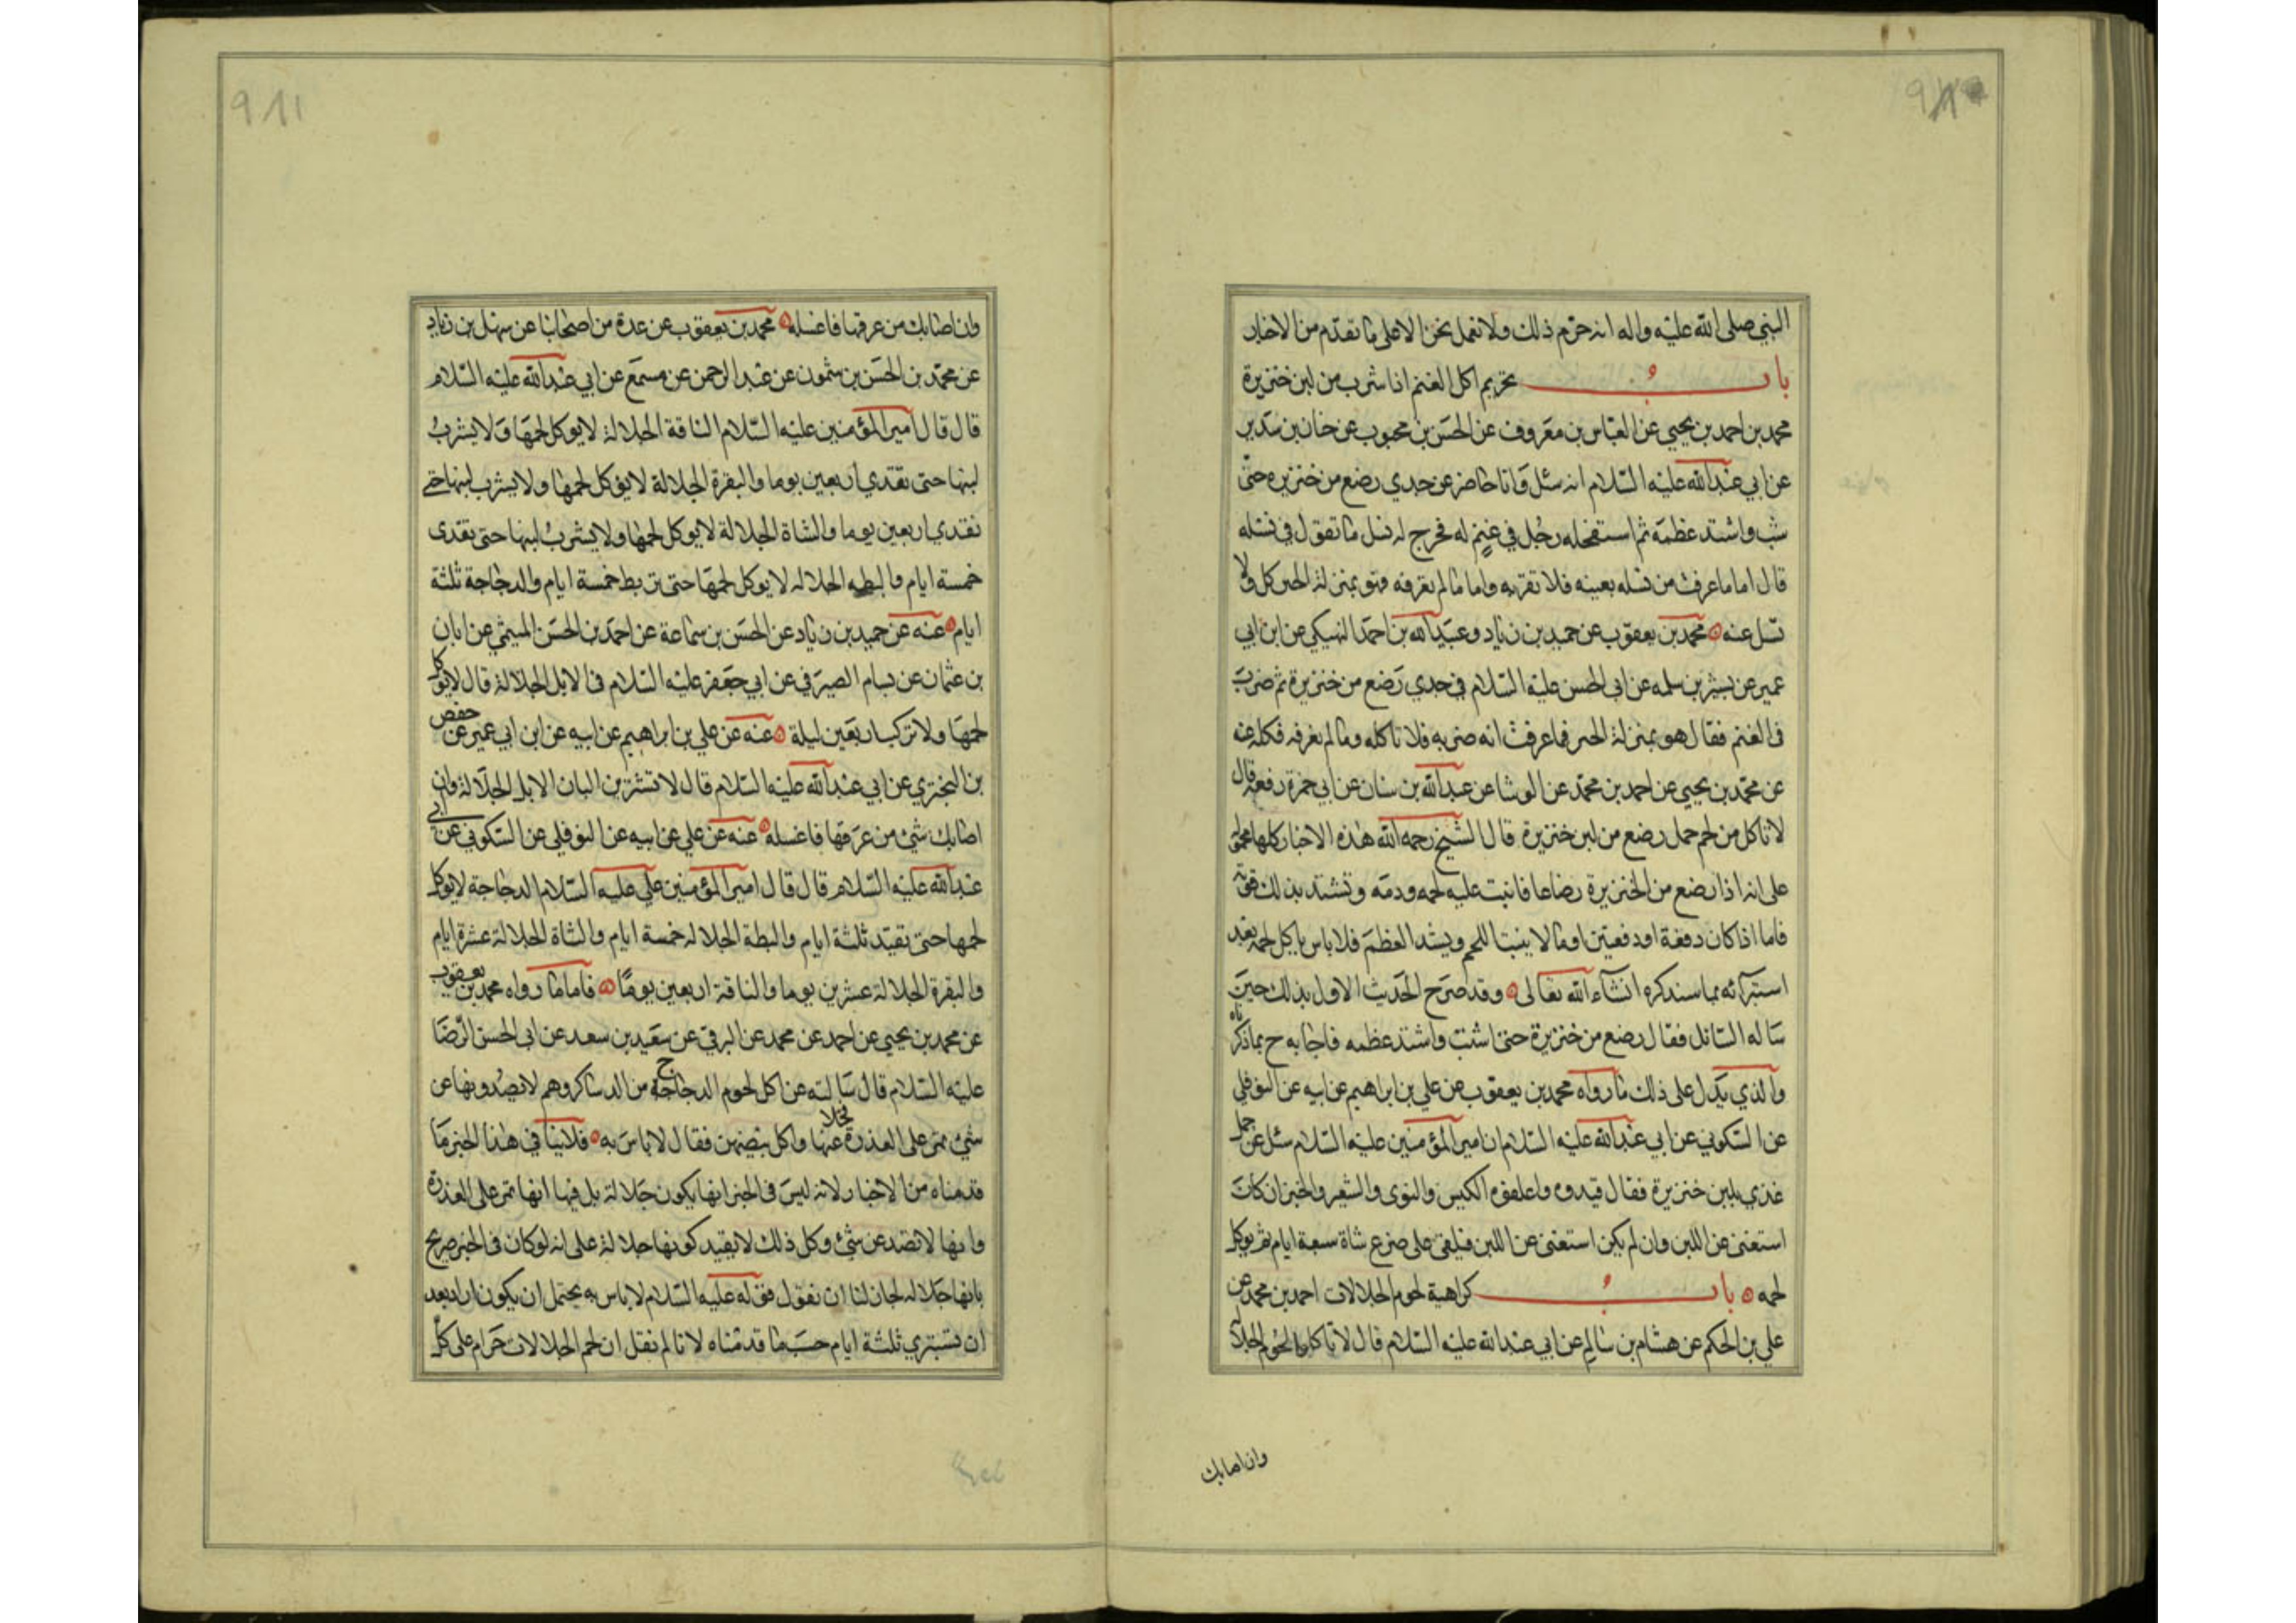 النبي صلى الله عليه واله انه حرم ذلك ولا نعمل نحن الا على ما تقدم من الاخبار
باب تحريم اكل الغنم اذا شرب من لبن خنزيرة
محمد بن احمد بن يحيى عن العباس بن معروف عن الحسن بن محبوب عن حنان بن سدير
عن ابي عبدالله عليه السلام انه سئل وانا حاضر عن جدي رضع من خنزيره حتى
شب واشتد عظمه ثم استفحله رجل في غنم له فخرج له نسل ما تقول في نسله
قال اما ما عرفت من نسله بعينه فلا تقربه واما ما لم تعرفه فهو بمنزلة الجبن كل ولا
تسل عنه محمد بن يعقوب عن حميد بن زياد وعبدالله بن احمد النهيكي عن ابن ابي
عمير عن بشر بن سلمه عن ابي الحسن عليه السلام في جدي رضع من خنزيرة ثم ضرب
في الغنم فقال هو بمنزلة الجبن فما عرفت انه ضربه فلا تاكله وما لم تعرفه فكله عنه
عن محمد بن يحيى عن احمد بن محمد عن الوشا عن عبدالله بن سنان عن ابي حمزة رفعه قال
لا تاكل من لحم حمل رضع من لبن خنزيرة قال الشيخ رحمه الله هذه الاخبار كلها محمولة
على انه اذا رضع من الخنزيرة رضاعا فانبت عليه لحمه ودمه وتشتد بذلك قوته
فاما اذا كان دفعة او دفعتين او ما لا ينبت اللحم ويشد العظم فلا باس باكل لحمه بعد
استبرائه بما سنذكره انشاء الله تعالى وقد صرح الحديث الاول بذلك حين
ساله السائل فقال رضع من خنزيرة حتى شب واشتد عظمه فاجابه ح بما ذكرناه
والذي يدل على ذلك ما رواه محمد بن يعقوب عن علي بن ابراهيم عن ابيه عن النوفلي
عن السكوني عن ابي عبدالله عليه السلام ان امير المؤمنين عليه السلام سئل عن حمل
غذي بلبن خنزيرة فقال قيدوه واعلفوه الكسب والنوى والشعير والخبز ان كان
استغنى عن اللبن وان لم يكن استغنى عن اللبن فيلقى على ضرع شاة سبعة ايام ثم يوكل
لحمه باب كراهية لحوم الجلالات احمد بن محمد عن
علي بن الحكم عن هشام بن سالم عن ابي عبدالله عليه السلام قال لا تاكلوا لحوم الجلالة
وان اصابك
وان اصابك من عرقها فاغسله محمد بن يعقوب عن عدة من اصحابنا عن سهل بن زياد
عن محمد بن الحسن بن شمون عن عبد الرحمن عن مسمع عن ابي عبدالله عليه السلام
قال قال امير المؤمنين عليه السلام الناقة الجلالة لا يوكل لحمها ولا يشرب
لبنها حتى تغدي اربعين يوما والبقرة الجلالة لا يوكل لحمها ولا يشرب لبنها حتى
تغدي اربعين يوما والشاة الجلالة لا يوكل لحمها ولا يشرب لبنها حتى تغدى
خمسة ايام والبطه الجلاله لا يوكل لحمها حتى تربط خمسة ايام والدجاجة ثلثة
ايام عنه عن حميد بن زياد عن الحسن بن سماعة عن احمد بن الحسن الميثمي عن ابان
بن عثمان عن بسام الصيرفي عن ابي جعفر عليه السلام في الابل الجلالة قال لا يوكل
لحمها ولا تركب اربعين ليلة عنه عن علي بن ابراهيم عن ابيه عن ابن ابي عمير عن حفص
بن البختري عن ابي عبدالله عليه السلام قال لا تشرب من البان الابل الجلالة وان
اصابك شئ من عرقها فاغسله عنه عن علي عن ابيه عن النوفلي عن السكوني عن ابي
عبدالله عليه السلام قال قال امير المؤمنين علي عليه السلام الدجاجة لا يوكل
لحمها حتى تقيد ثلثة ايام والبطة الجلاله خمسة ايام والشاة الجلالة عشرة ايام
والبقرة الجلالة عشرين يوما والناقة اربعين يوما فاما ما رواه محمد بن يعقوب
عن محمد بن يحيى عن احمد عن محمد عن البرقي عن سعيد بن سعد عن ابي الحسن الرضا
عليه السلام قال سالته عن اكل لحوم الدجاجة من الدساكر وهم لا يصدونها عن
شئ تمر على العذرة مخلا عنها واكل بيضهن فقال لا باس به فلا ينافي هذا الخبر ما
قدمناه من الاخبار لانه ليس في الخبر انها يكون جلالة بل فيها انها تمر على العذرة
وانها لا تصد عن شئ وكل ذلك لا يفيد كونها جلالة على انه لو كان في الخبر صريح
بانها جلاله لجاز لنا ان نقول قوله عليه السلام لا باس به يحتمل ان يكون اراد بعد
ان تستبري ثلثة ايام حسب ما قدمناه لانا لم نقل ان لحم الجلالات حرام على كل
911